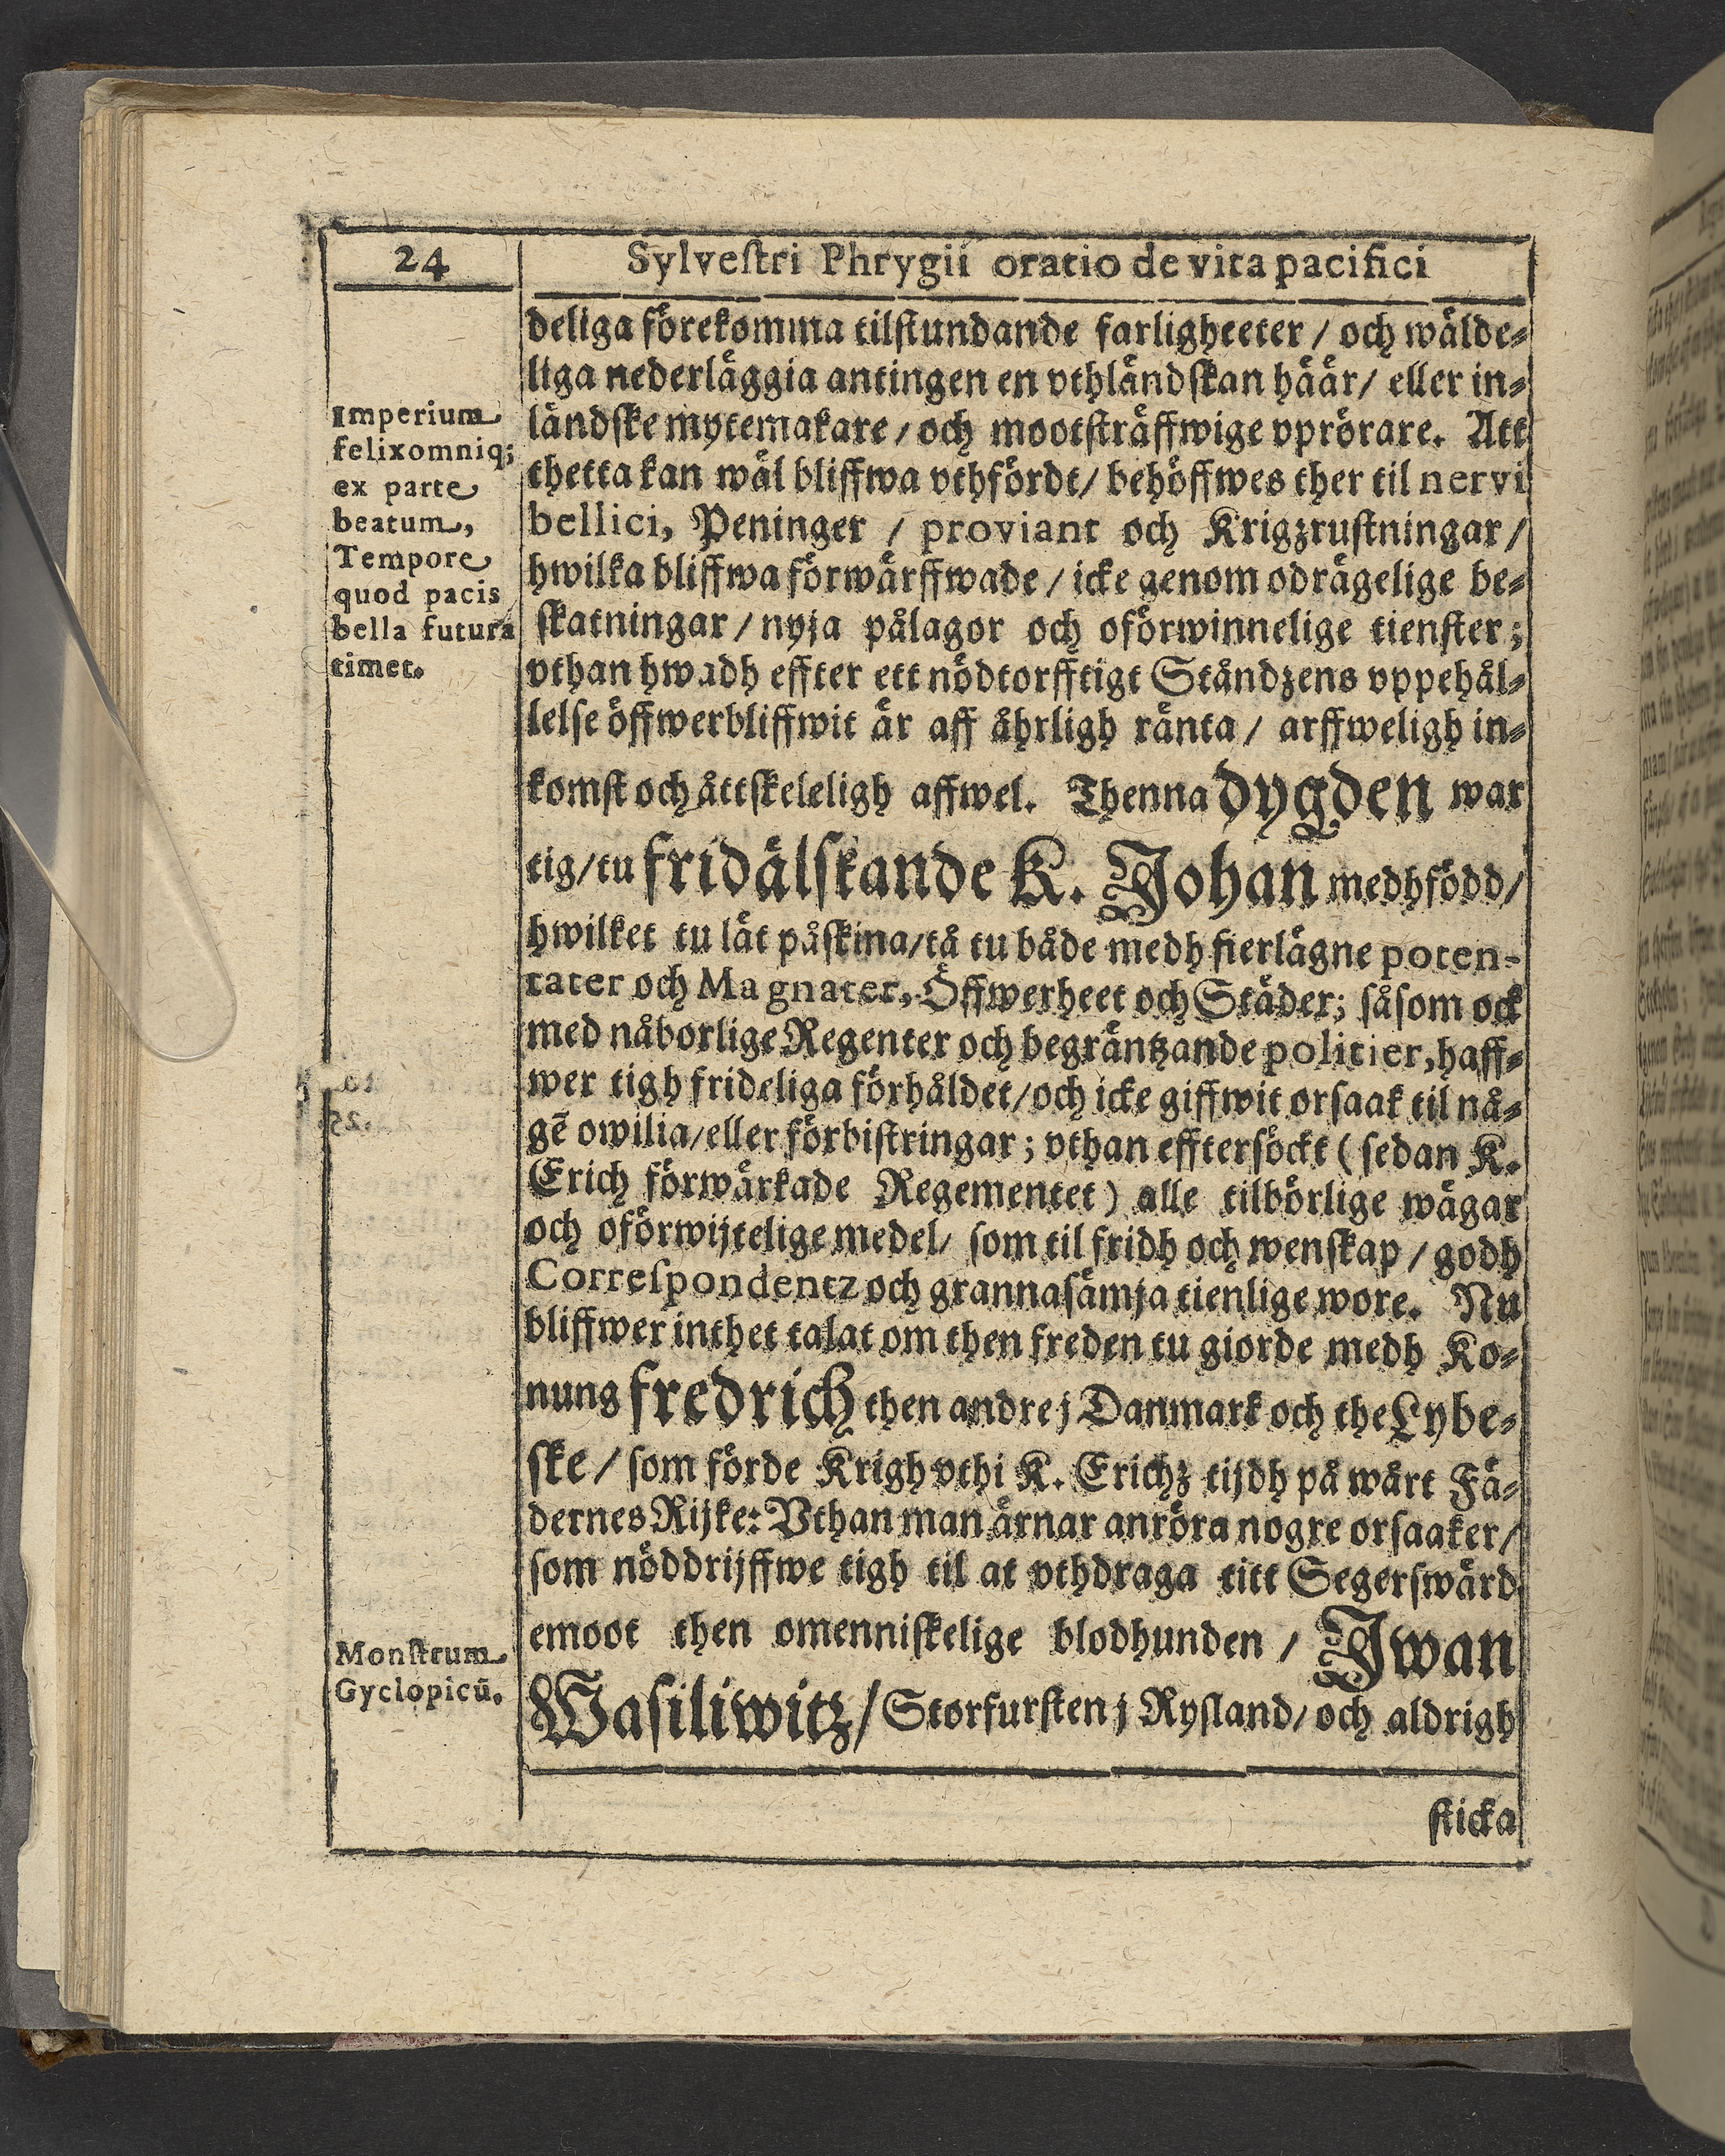 24
Sylveſtri Phrygii oratio de vita pacifici
deliga förekomma tilſtundande farligheeter / och wälde-
liga nederläggia antingen en vthländſkan häär / eller in-
ländſke mytemakare / och mootſträffwige vprörare. Att
thetta kan wäl bliffwa vthfördt / behöffwes ther til nervi
bellici, Peninger / proviant och Krigzruſtningar /
hwilka bliffwa förwärffwade / icke genom odrägelige be-
ſkatningar / nyja pålagor och oförwinnelige tienſter;
vthan hwadh effter ett nödtorfftigt Ståndzens vppehål-
lelſe öffwerbliffwit är aff åhrligh ränta / arffweligh in-
komſt och åttſkeleligh affwel. Thenna dygden war
tig / tu fridälſkande K. Johan medhfödd /
hwilket tu lät påſkina / tå tu både medh fierlägne poten-
tater och Magnater, Öffwerheet och Städer; såſom ock
med nåborlige Regenter och begräntzande politier, haff-
wer tigh frideliga förhåldet / och icke giffwit orſaak til nå-
gē owilia / eller förbiſtringar; vthan efftersöckt ( ſedan K.
Erich förwärkade Regementet ) alle tilbörlige wägar
och oförwijtelige medel / ſom til fridh och wenſkap / godh
Correſpondentz och grannaſämja tienlige wore. Nu
bliffwer inthet talat om then freden tu giorde medh Ko-
nung fredrich then andre j Danmark och the Lybe-
ſke / ſom förde Krigh vthi K. Erichz tijdh på wårt Fä-
dernes Rijke: Vthan man ärnar anröra nogre orſaaker /
ſom nöddrijffwe tigh til at vthdraga titt Segerſwärd
emoot then omenniſkelige blodhunden / Jwan
Waſiliwitz / Storfurſten j Ryſland / och aldrigh
ſticka
Imperium
felixomniq;
ex parte
beatum,
Tempore
quod pacis
bella futura
timet.
Monſtrum
Gyclopicū.